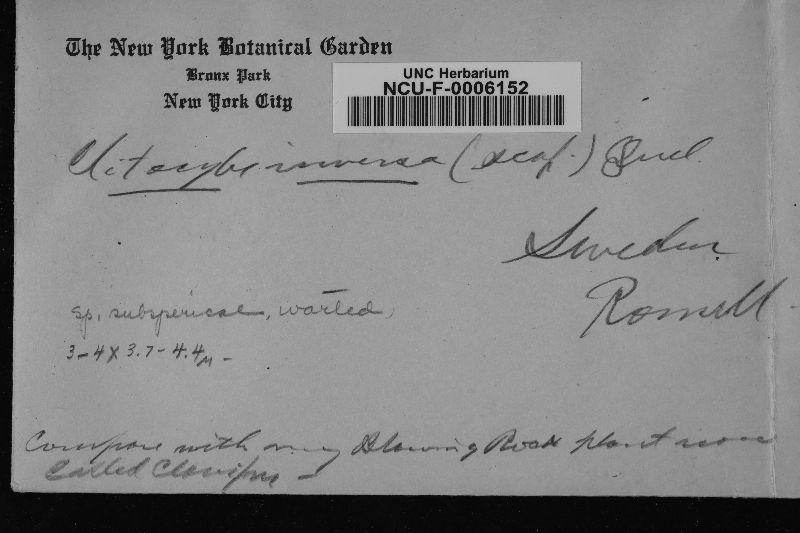 The New York Botanical Garden
Bronx Park
New York City
UNC Herbarium
NCU-F-0006152
Clitocybe inversa (scop.) Quel.
Sweden
Romell
sp. subsperical, warted,
3-4 x 3.7-4.4 µ -
Compare with my Blowing Rock plant now
called Clavipes -